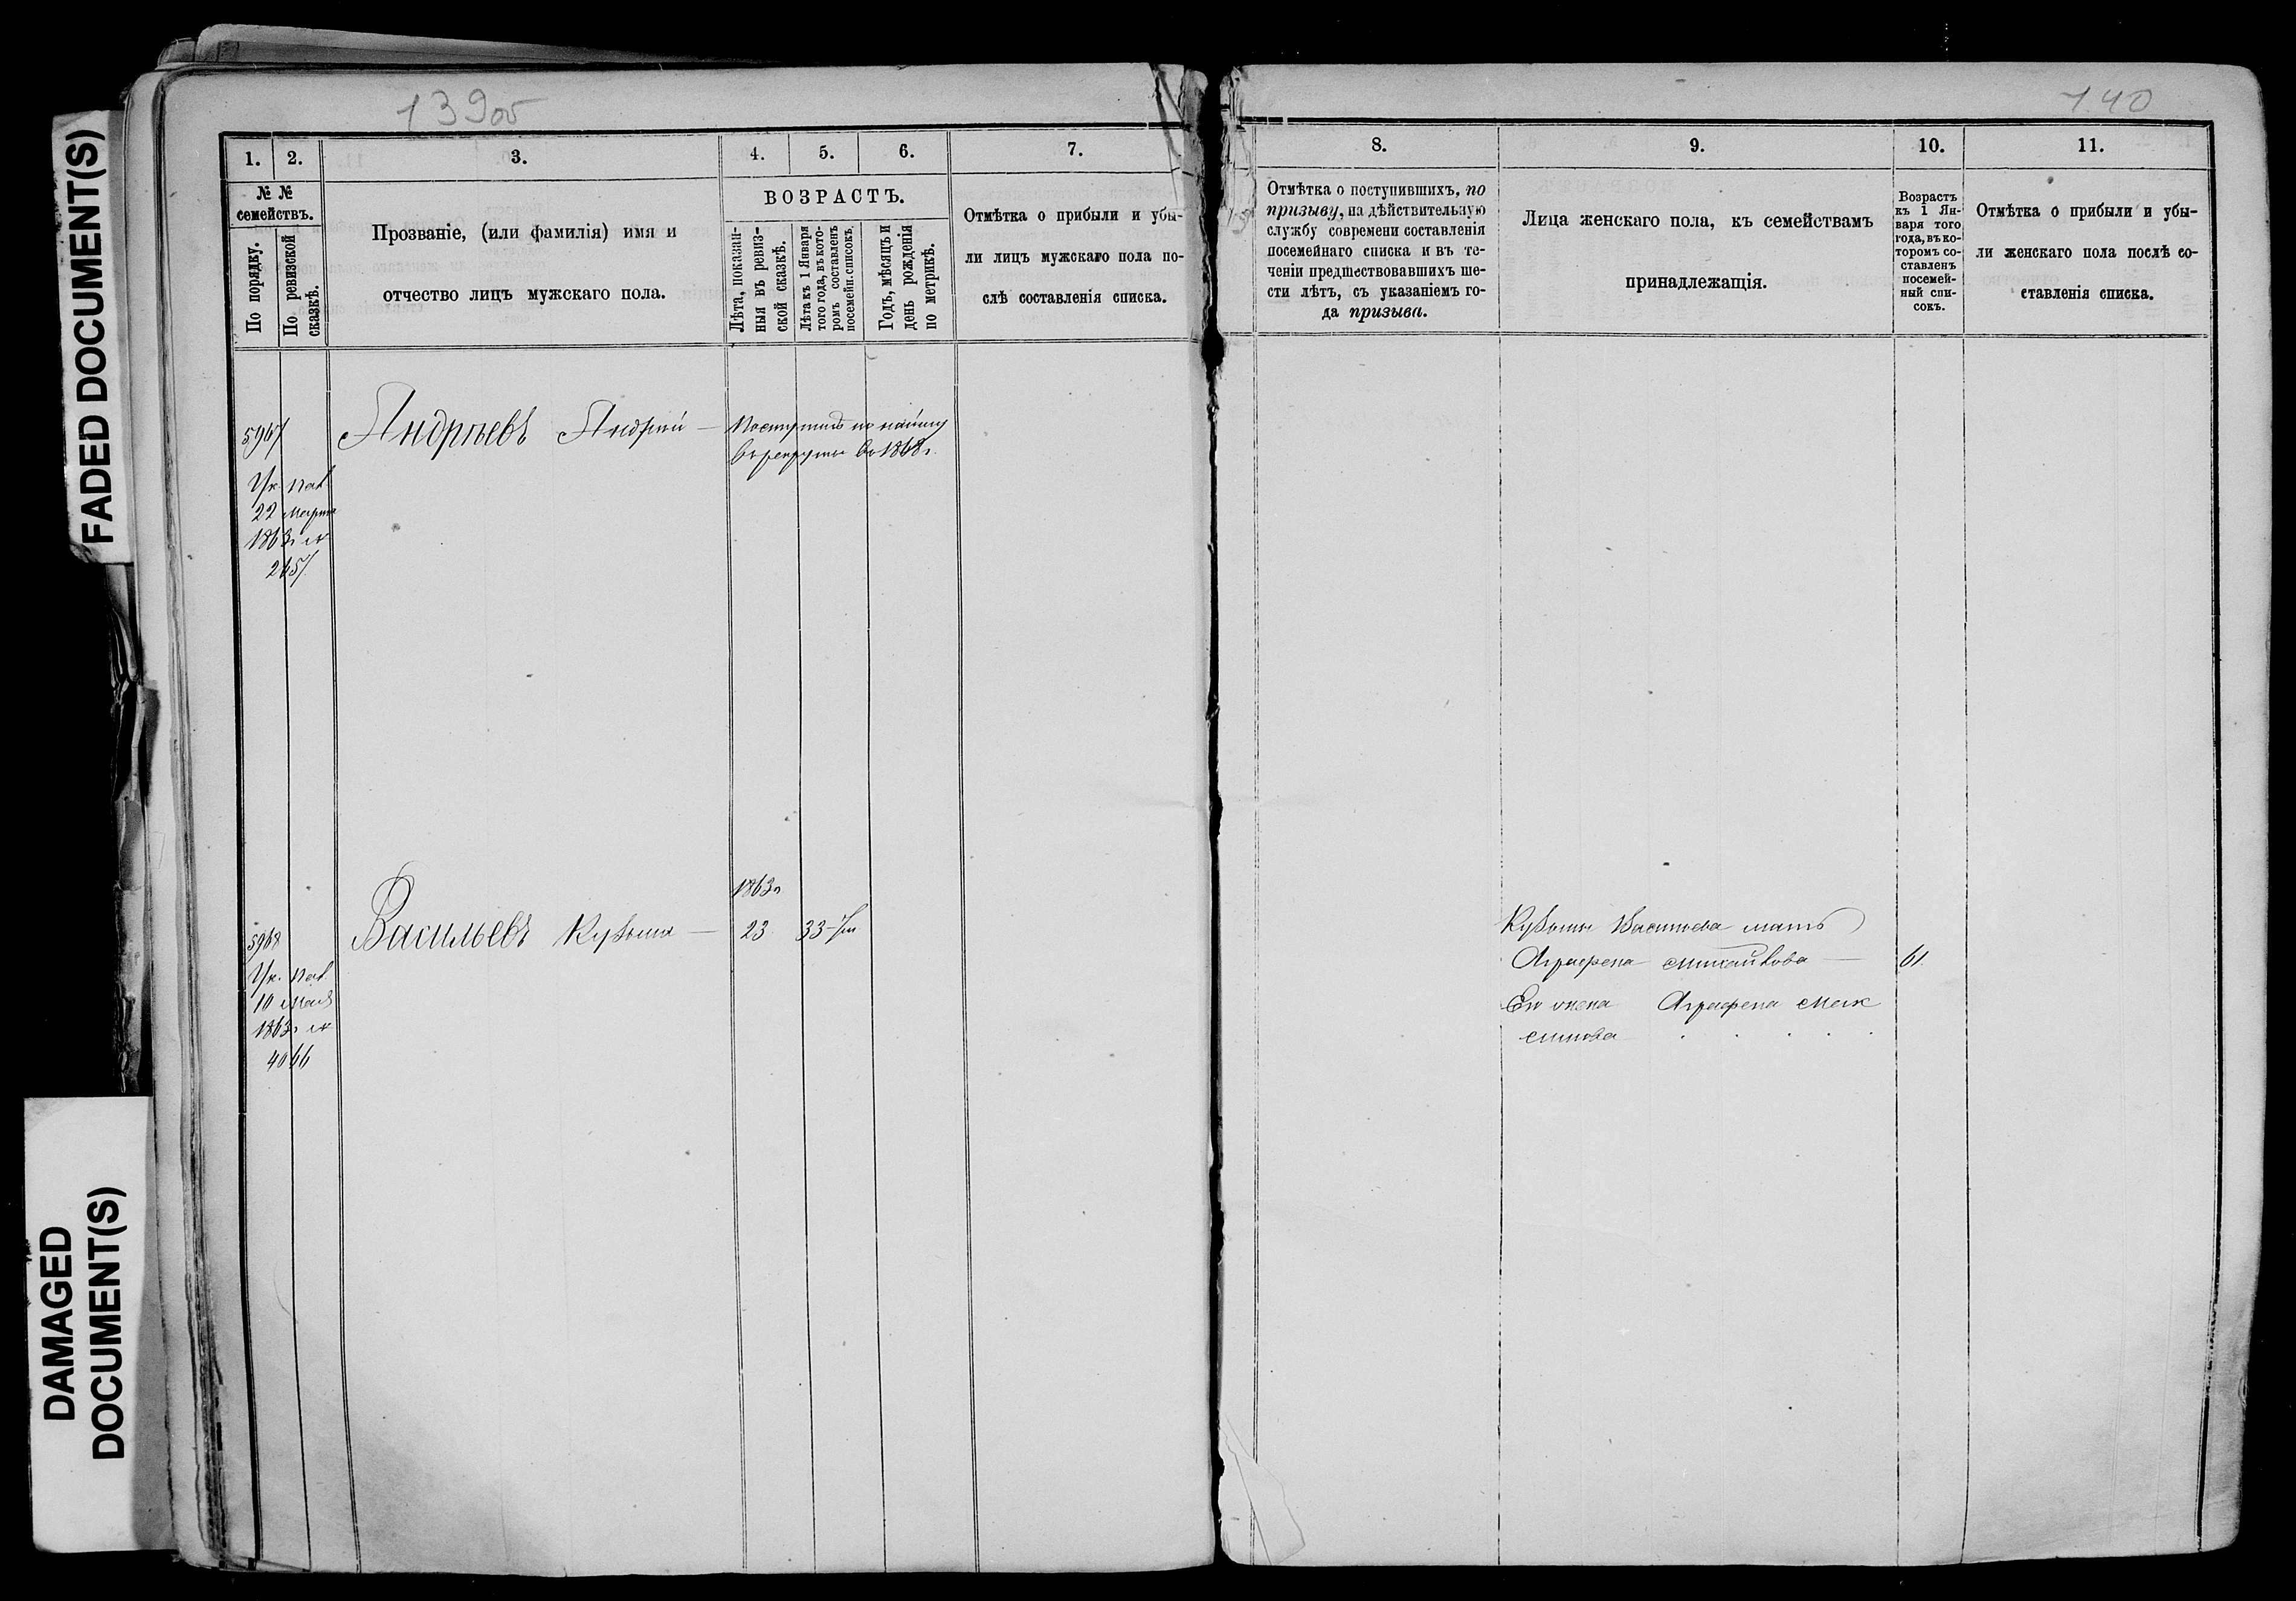 FADED DOCUMENT(S)
DAMAGED
DOCUMENT(S)
139об
1. 2. 3. 4. 5. 6. 7.
№ №
семействъ.
По порядку.
По ревизской
сказкѣ.
Прозваніе, (или фамилія) имя и
отчество лицъ мужскаго пола.
ВОЗРАСТЪ.
Лѣта, показан-
ныя въ ревиз-
ской сказкѣ.
Лѣта къ 1 Января
того года, въ кото-
ромъ составленъ
посемейн. списокъ.
Годъ, мѣсяцъ и
день рожденія
по метрикѣ.
Отмѣтка о прибыли и убы-
ли лицъ мужскаго пола по-
слѣ составленія списка.
5967
Андрѣевъ Андрей — Поступилъ по найму
въ рекруты въ 1868 г.
Ук. пал.
22 марта
1863 г. №
2457
1863 г.
5968
Васильевъ Кузьма — 23 33
Ук. пал.
10 мая
1863 г. №
4066
140
8. 9. 10. 11.
Отмѣтка о поступившихъ, по
призыву, на дѣйствительную
службу современи составленія
посемейнаго списка и въ те-
ченіи предшествовавшихъ ше-
сти лѣтъ, съ указаніемъ го-
да призыва.
Лица женскаго пола, къ семействамъ
принадлежащія.
Возрастъ
къ 1 Ян-
варя того
года, въ ко-
торомъ со-
ставленъ
посемей-
ный спи-
сокъ.
Отмѣтка о прибыли и убы-
ли женскаго пола послѣ со-
ставленія списка.
Кузьмы Васильева мать
Аграфена Михайлова — 61.
Его жена Аграфена Мак
симова . . . . .